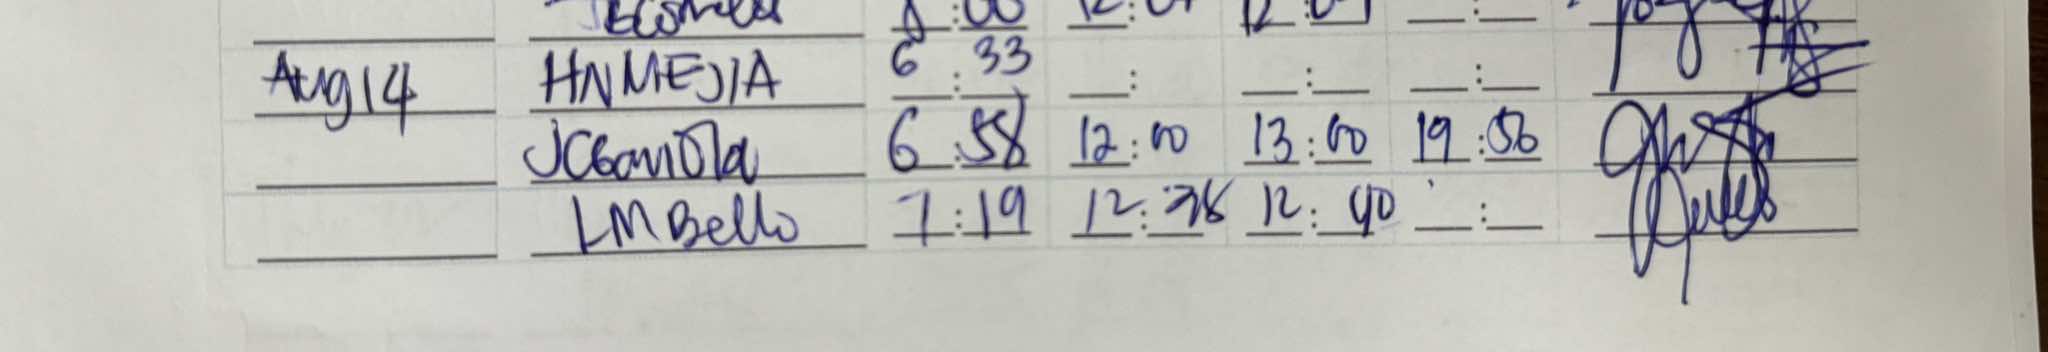 8:00 12:01 12:04 __:__
Aug 14 HNMEJIA 6:33 __: __:__ __:__
JCGaviola 6:58 12:00 13:00 19:56
LM Bello 7:19 12:38 12:40 __:__